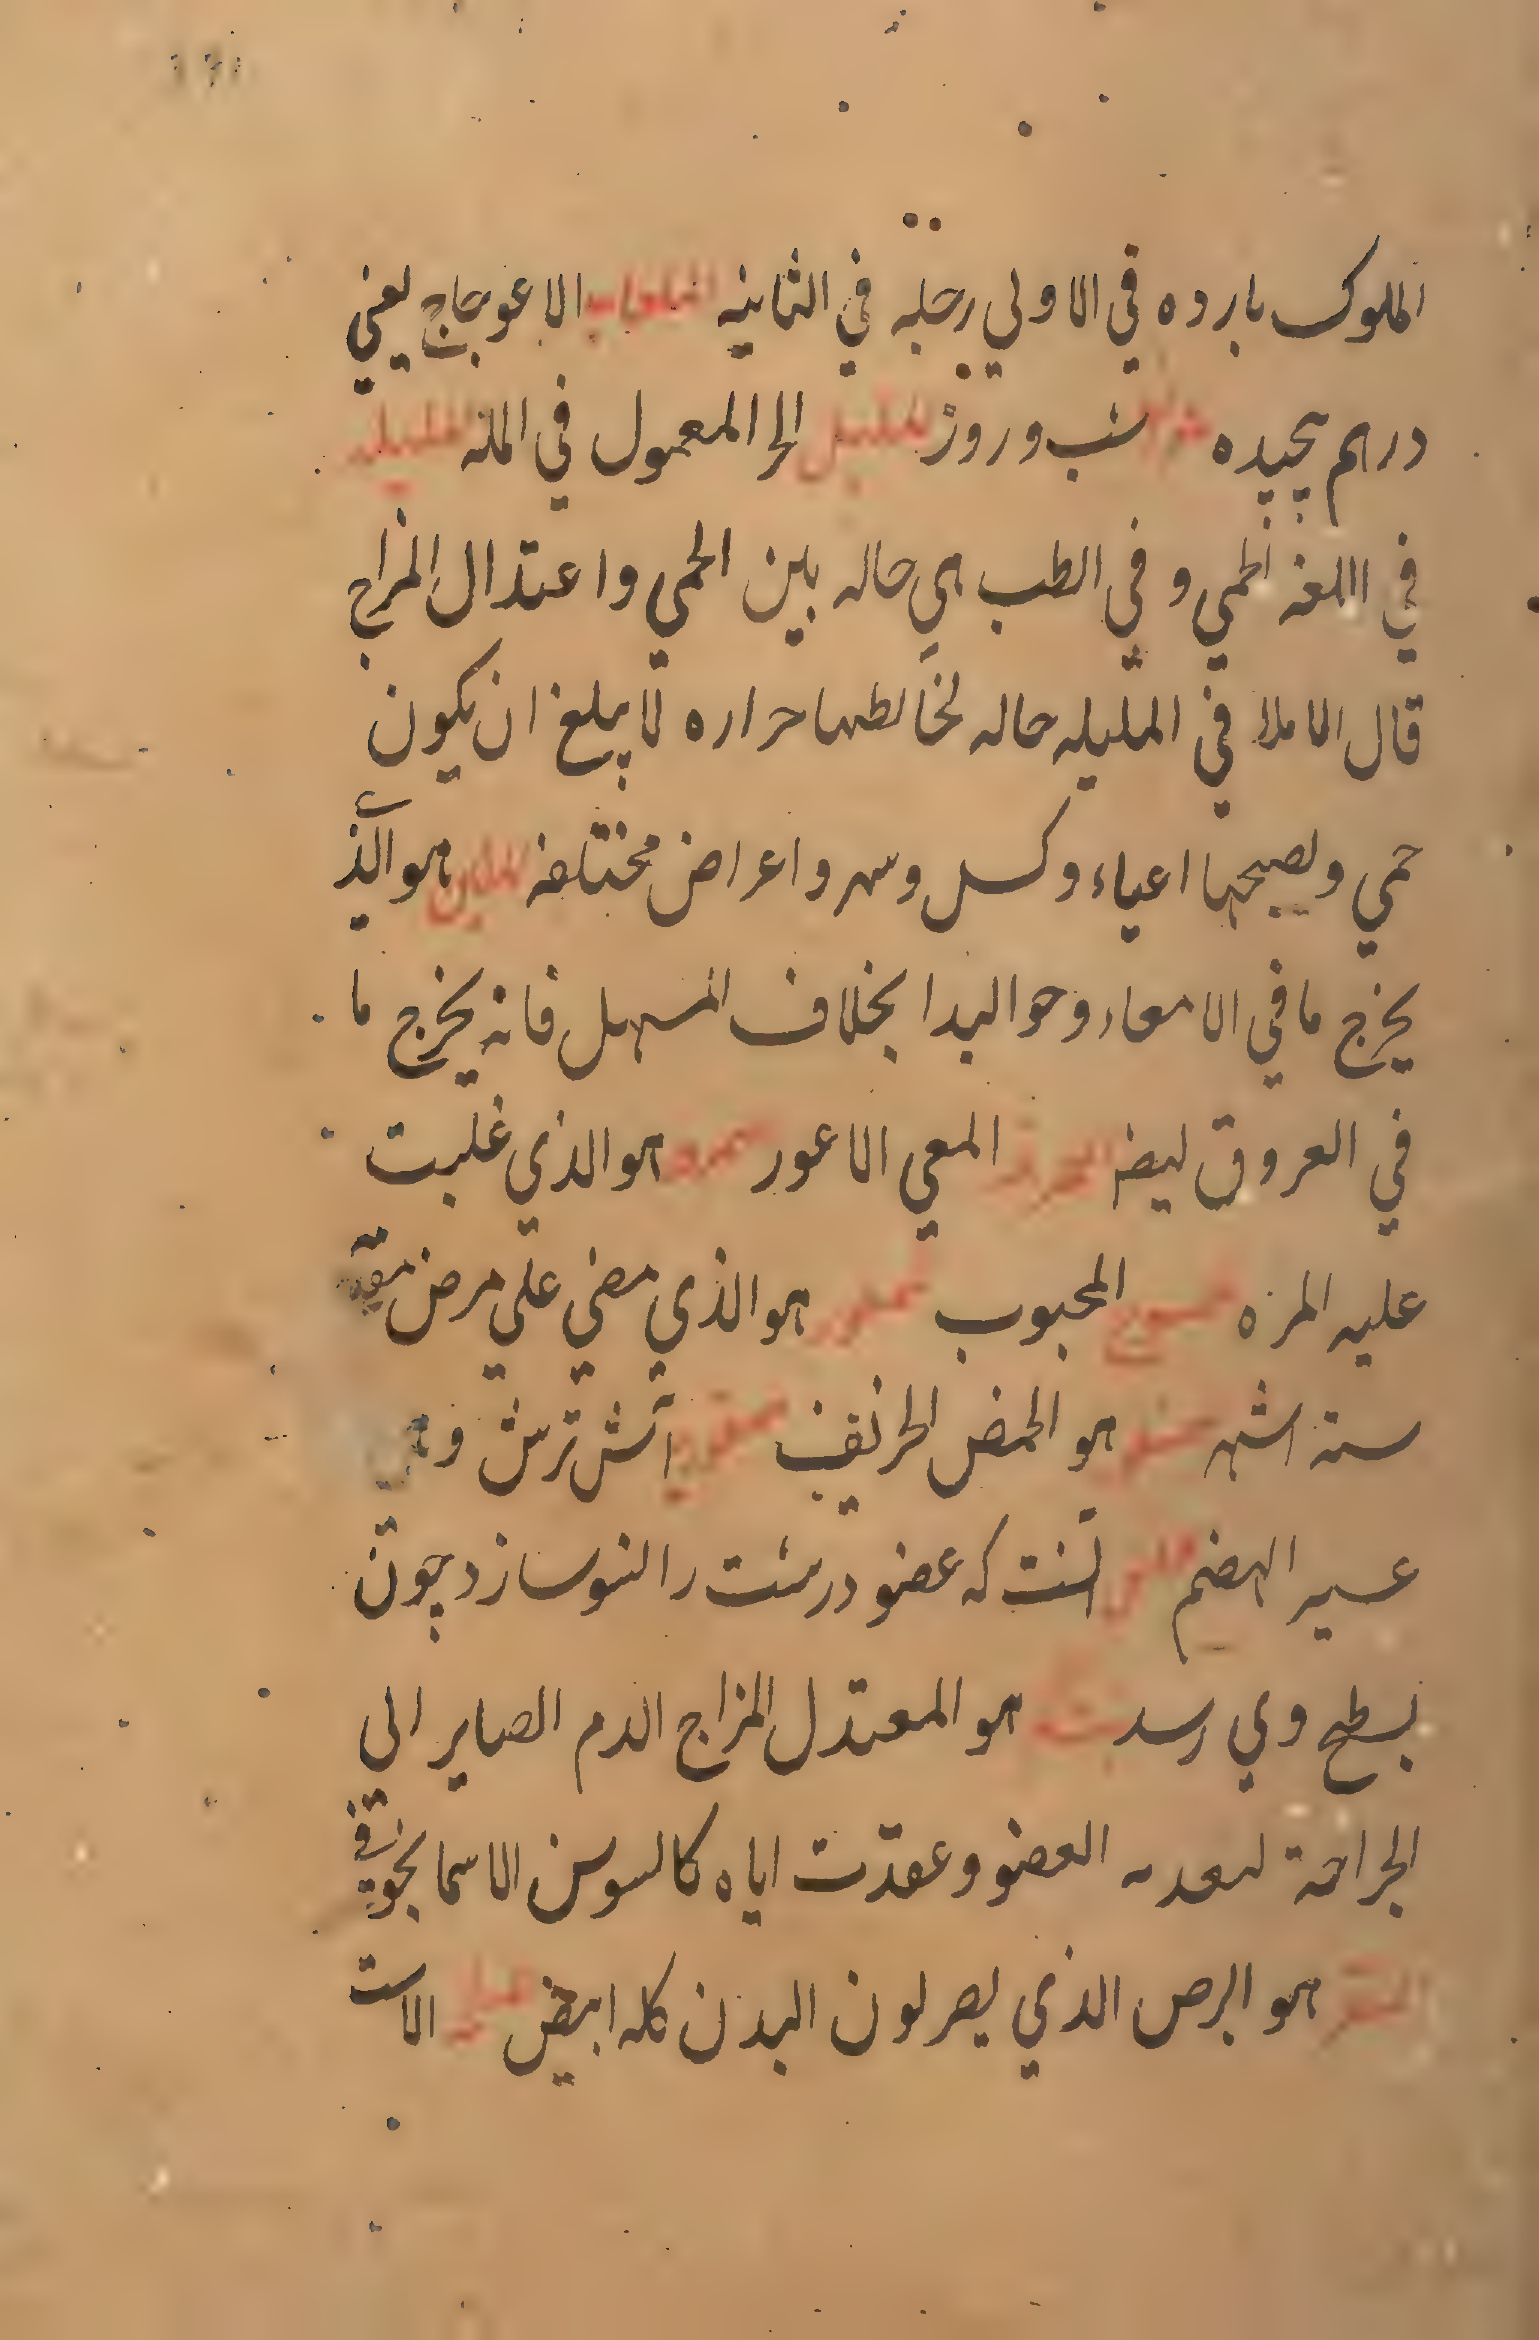 الملوك بارده في الاولي رحله في الثانيه الاعوجاج يعني
درهم پیچیده شب وروز المليل الحر المعمول في المله المليله
في اللغه الحمي و في الطب هي حاله بين الحمي واعتدال المزاج
قال الاملا في المليله حاله تخالطها حراره لا يبلغ ان يكون
حمي ويصبحها اعياء وكسل وسهر واعراض مختلفه الملين هو الذ
يخرج ما في الامعاء وحواليدا بخلاف المسهل فانه يخرج ما
في العروق ايضا المعي الاعور ممرور هو الذي غلبت
عليه المره المحبوب هو الذي مضي علي مرض
سته اشهر هو الحمض الحريف آتش ترش و
عسير الهضم آنست که عضو درشت را لنوسازد چون
بسطح وي رسد هو المعتدل المزاج الدم الصاير الى
الجراحة العضو وعقدت اياه كالسوسن الاسمانجوني
هو البرص الذي يصر لون البدن كله ابيض الاست